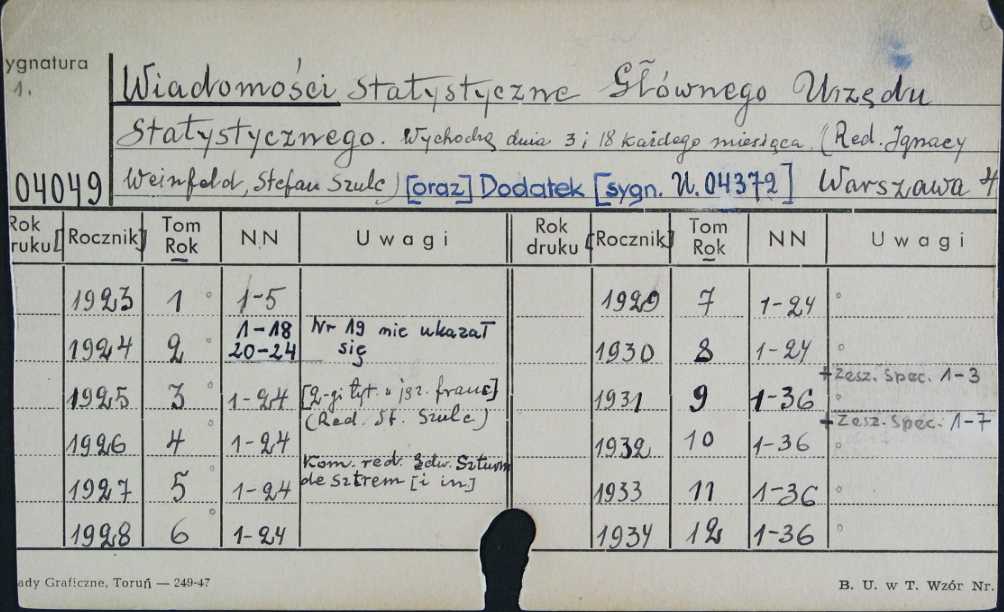 ygnatura
1.
Wiadomości Statystyczne Głównego Urzędu
Statystycznego. Wychodzą dnia 3 i 18 każdego miesiąca. (Red. Ignacy
04049 Weinfeld, Stefan Szulc) [oraz] Dodatek [sygn. U.04372] Warszawa 4
Rok druku [Rocznik] Tom Rok NN Uwagi Rok druku [Rocznik] Tom Rok NN Uwagi
1923 1 1-5 1929 7 1-24
1924 2 1-18 20-24 Nr 19 nie ukazał się 1930 8 1-24
1925 3 1-24 [2-gi tyt. w jęz. franc] (Red. St. Szulc) 1931 9 1-36 + Zesz. Spec. 1-3
1926 4 1-24 1932 10 1-36 + Zesz. Spec. 1-7
1927 5 1-24 Kom. red. Edw. Szturm de Sztrem [i in.] 1933 11 1-36
1928 6 1-24 1934 12 1-36
ady Graficzne, Toruń — 249-47 B. U. w T. Wzór Nr.